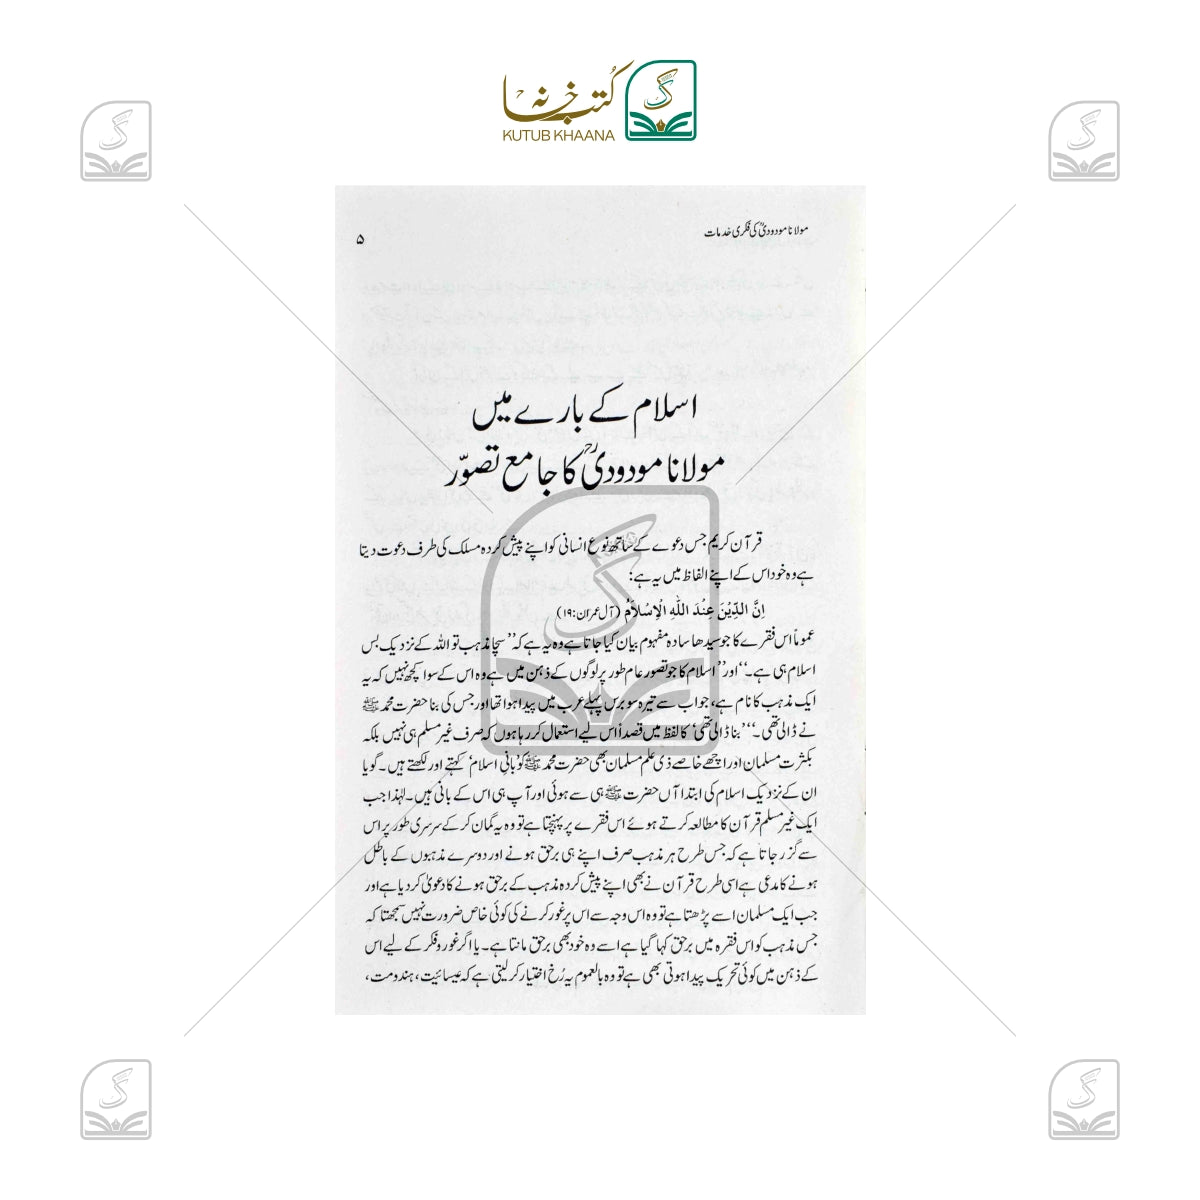 کتب خانہ
KUTUB KHAANA
مولانا مودودیؒ کی فکری خدمات
۵
اسلام کے بارے میں
مولانا مودودیؒ کا جامع تصوّر
قرآن کریم جس دعوے کے ساتھ نوع انسانی کو اپنے پیش کردہ مسلک کی طرف دعوت دیتا
ہے وہ خود اس کے اپنے الفاظ میں یہ ہے:
اِنَّ الدِّیْنَ عِنْدَ اللّٰہِ الْاِسْلَامُ (آل عمران:۱۹)
عموماً اس فقرے کا جو سیدھا سادہ مفہوم بیان کیا جاتا ہے وہ یہ ہے کہ ”سچا مذہب تو اللہ کے نزدیک بس
اسلام ہی ہے۔“ اور ”اسلام کا جو تصور عام طور پر لوگوں کے ذہن میں ہے وہ اس کے سوا کچھ نہیں کہ یہ
ایک مذہب کا نام ہے، جو اب سے تیرہ سو برس پہلے عرب میں پیدا ہوا تھا اور جس کی بنا حضرت محمد ﷺ
نے ڈالی تھی۔“ ’بنا ڈالی تھی‘ کا لفظ میں قصداً اس لیے استعمال کر رہا ہوں کہ صرف غیر مسلم ہی نہیں بلکہ
بکثرت مسلمان اور اچھے خاصے ذی علم مسلمان بھی حضرت محمد ﷺ کو ’بانیِ اسلام‘ کہتے اور لکھتے ہیں۔ گویا
ان کے نزدیک اسلام کی ابتدا آں حضرت ﷺ ہی سے ہوئی اور آپ ہی اس کے بانی ہیں۔ لہٰذا جب
ایک غیر مسلم قرآن کا مطالعہ کرتے ہوئے اس فقرے پر پہنچتا ہے تو وہ یہ گمان کر کے سرسری طور پر اس
سے گزر جاتا ہے کہ جس طرح ہر مذہب صرف اپنے ہی برحق ہونے اور دوسرے مذہبوں کے باطل
ہونے کا مدعی ہے اسی طرح قرآن نے بھی اپنے پیش کردہ مذہب کے برحق ہونے کا دعویٰ کر دیا ہے اور
جب ایک مسلمان اسے پڑھتا ہے تو وہ اس وجہ سے اس پر غور کرنے کی کوئی خاص ضرورت نہیں سمجھتا کہ
جس مذہب کو اس فقرہ میں برحق کہا گیا ہے اسے وہ خود بھی برحق مانتا ہے۔ یا اگر غور و فکر کے لیے اس
کے ذہن میں کوئی تحریک پیدا ہوتی بھی ہے تو وہ بالعموم یہ رُخ اختیار کر لیتی ہے کہ عیسائیت، ہندومت،